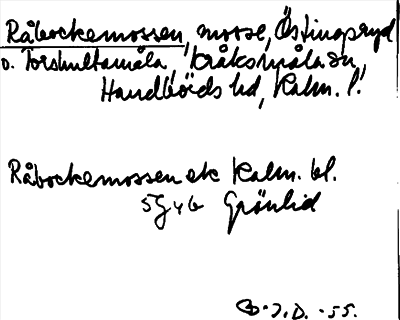 Råbockemossen, mosse, Östingpryd
o. Torshultamåla, kråksmåla sn,
Handbörds hd, Kalm. l.
Råbockemossen ek Kalm. bl.
5G4b Grönlid
.J.D. -55.